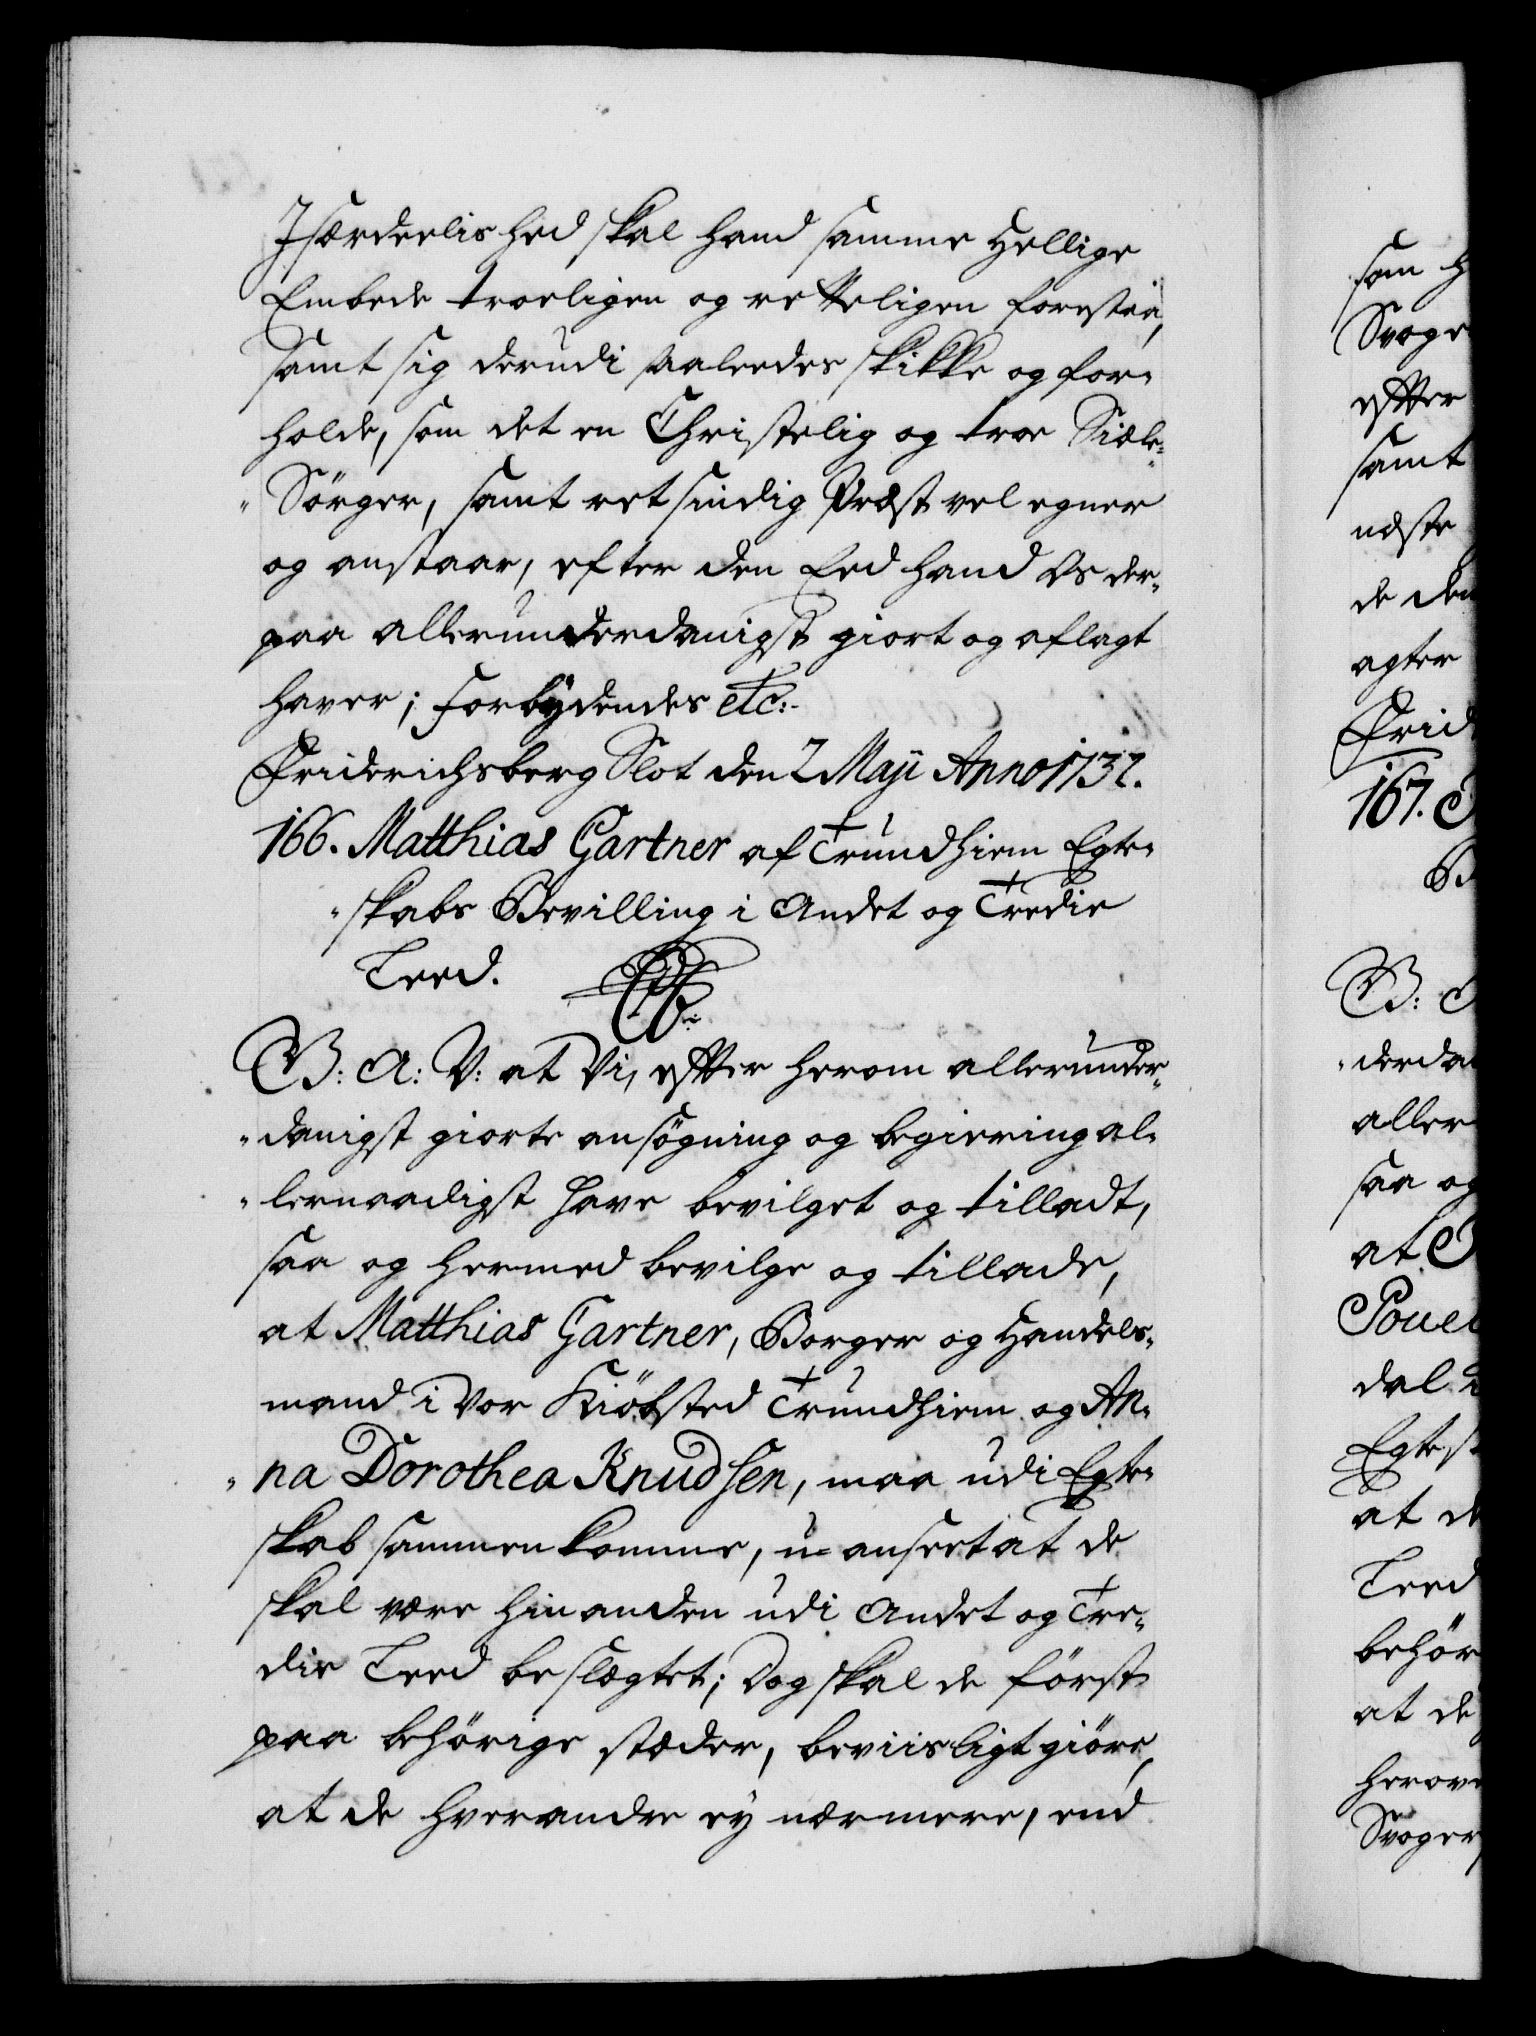 Isærdeelished skal hand samme Hellige
Embede troeligen og retteligen forestaa,
samt sig derudi saaleedes skikke og for-
holde, som det en Christelig og troe Siæle-
"Sörger, samt retsindig Præst vel egner
og anstaar, efter den Eed hand Os der-
paa allerunderdanigst giort og aflagt
haver; Forbydendes etc:
Friderichsberg Slot den 2 Maji Anno 1732.
166. Matthias Gartner af Trundhiem Egte-
"skabs Bevilling i Andet og Tredie
Leed.
G: A: V: at Vi, effter herom allerunder-
"danigst giorte ansögning og begiering al-
"lernaadigst have bevilget og tilladt,
saa og hermed bevilge og tillade,
at Matthias Gartner, Borger og Handels-
mand i Vor Kiöbsted Trundhiem og An-
"na Dorothea Knudsen, maa udi Egte-
skab sammenkomme, u-anseet at de
skal være hinanden udi Andet og Tre-
die Leed beslægtet; Dog skal de först
paa behörige stæder, beviisligt giöre,
at de hverandre ey nærmere, end
som H
Svoge
effter
samt
næste
de den
agter
Frid
167.
B:
"derda
aller
saa og
at
Povel
dal
Egtes
at de
Leed
behör
at de
herov
Svoger